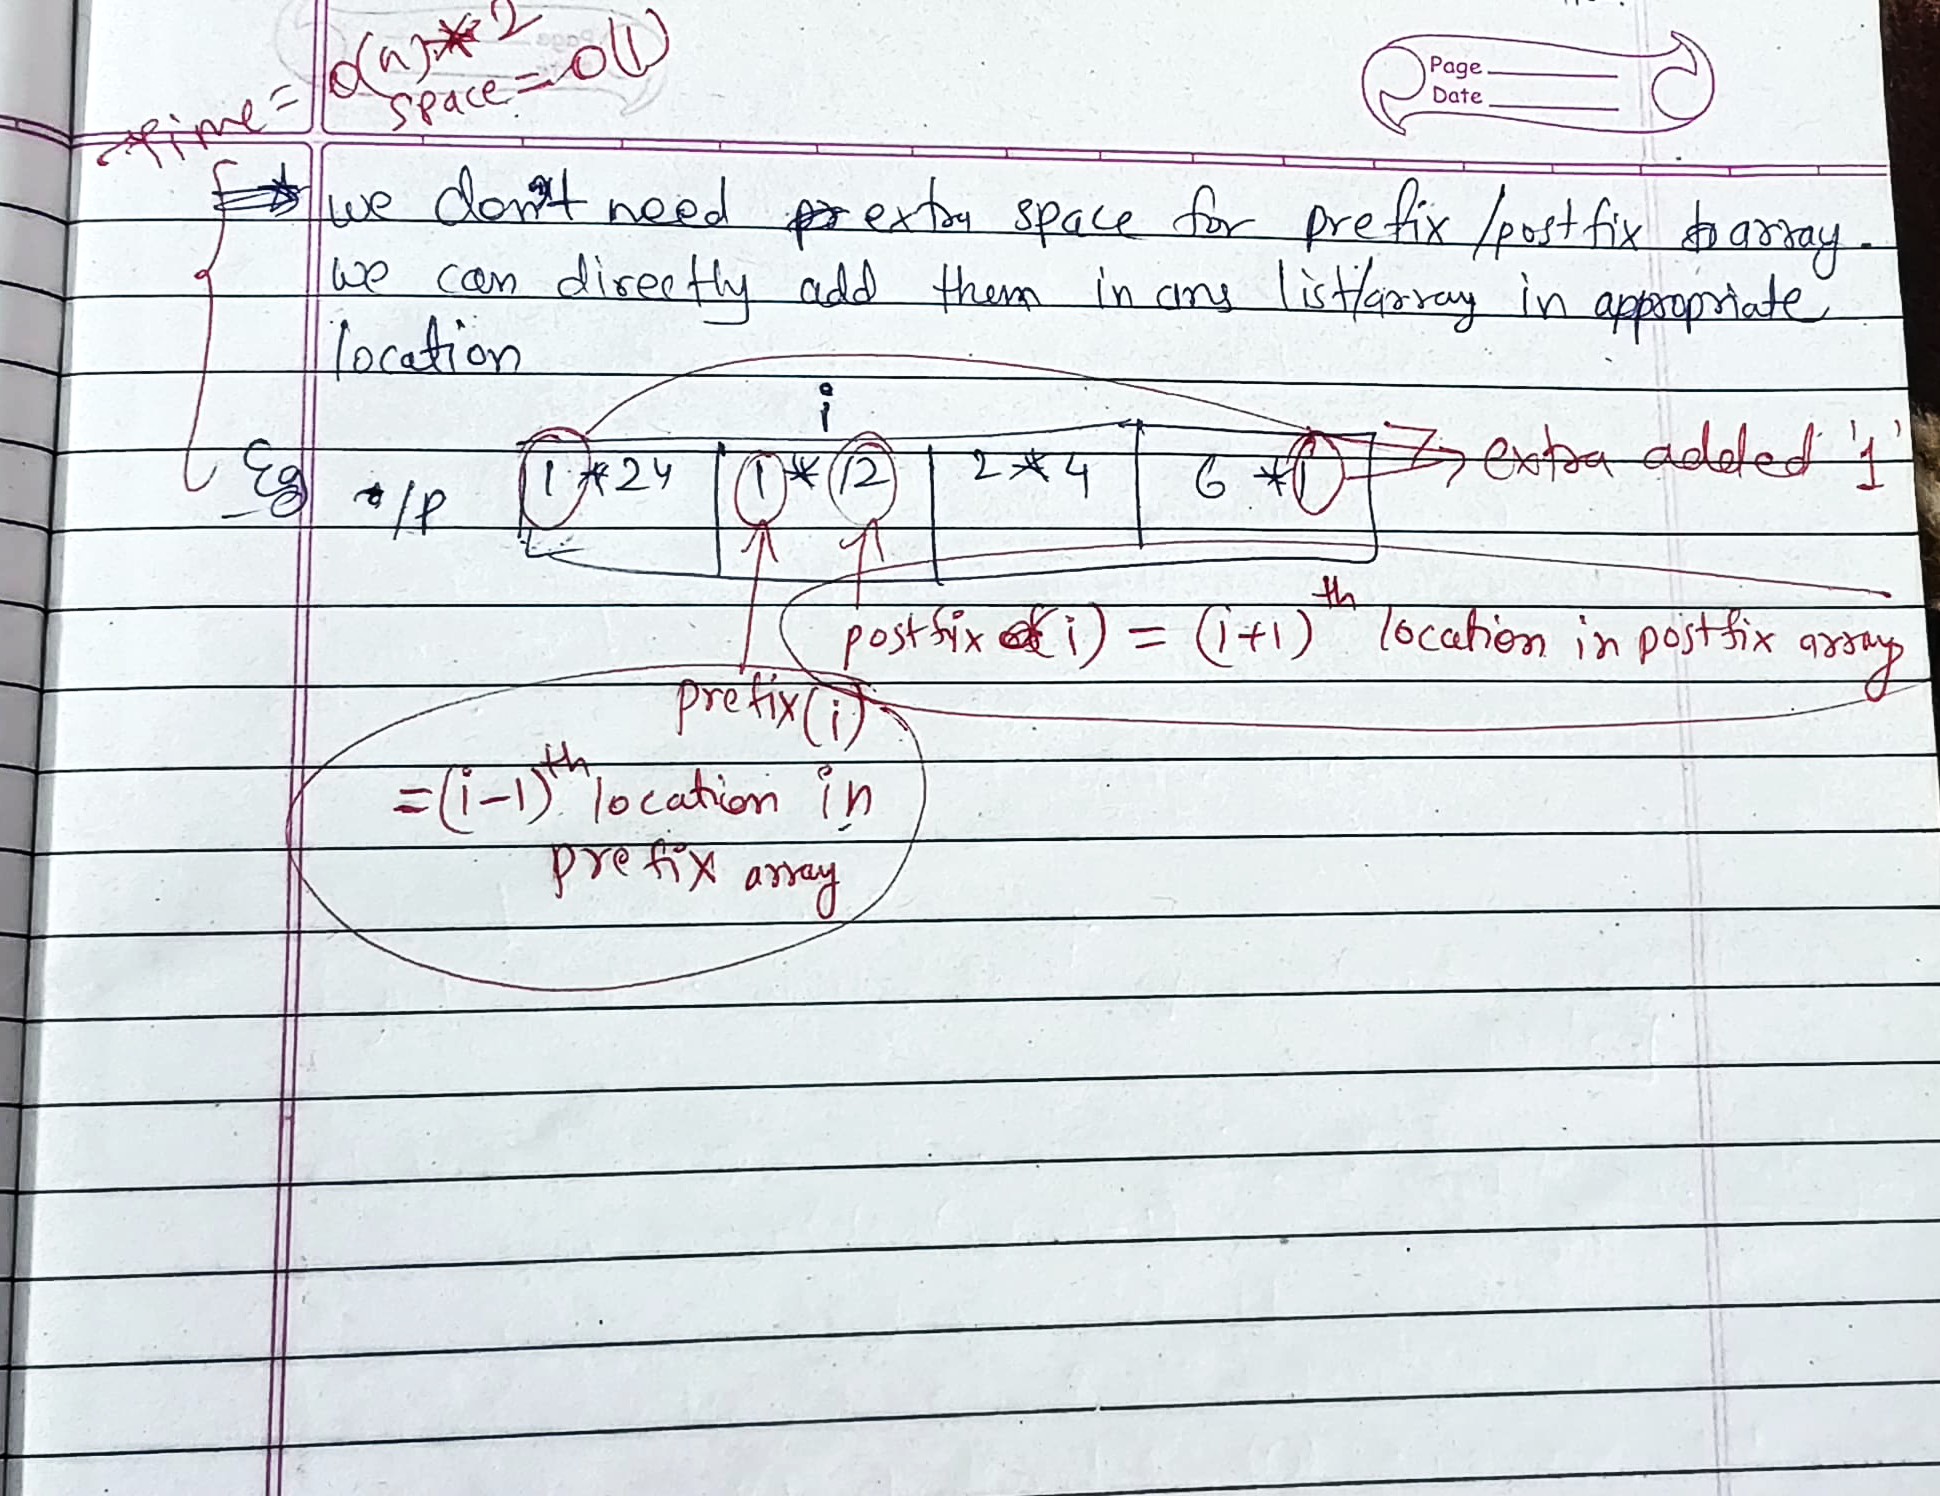 Page
Date
time = O(n)*2
space = O(1)
we don't need extra space for prefix /postfix array.
we can directly add them in ans list/array in appropriate
location
i
Eg /P 1 * 24 1 * 12 2 * 4 6 * 1 extra added '1'
postfix (i) = (i+1)th location in postfix array
prefix(i)
= (i-1)th location in
prefix array